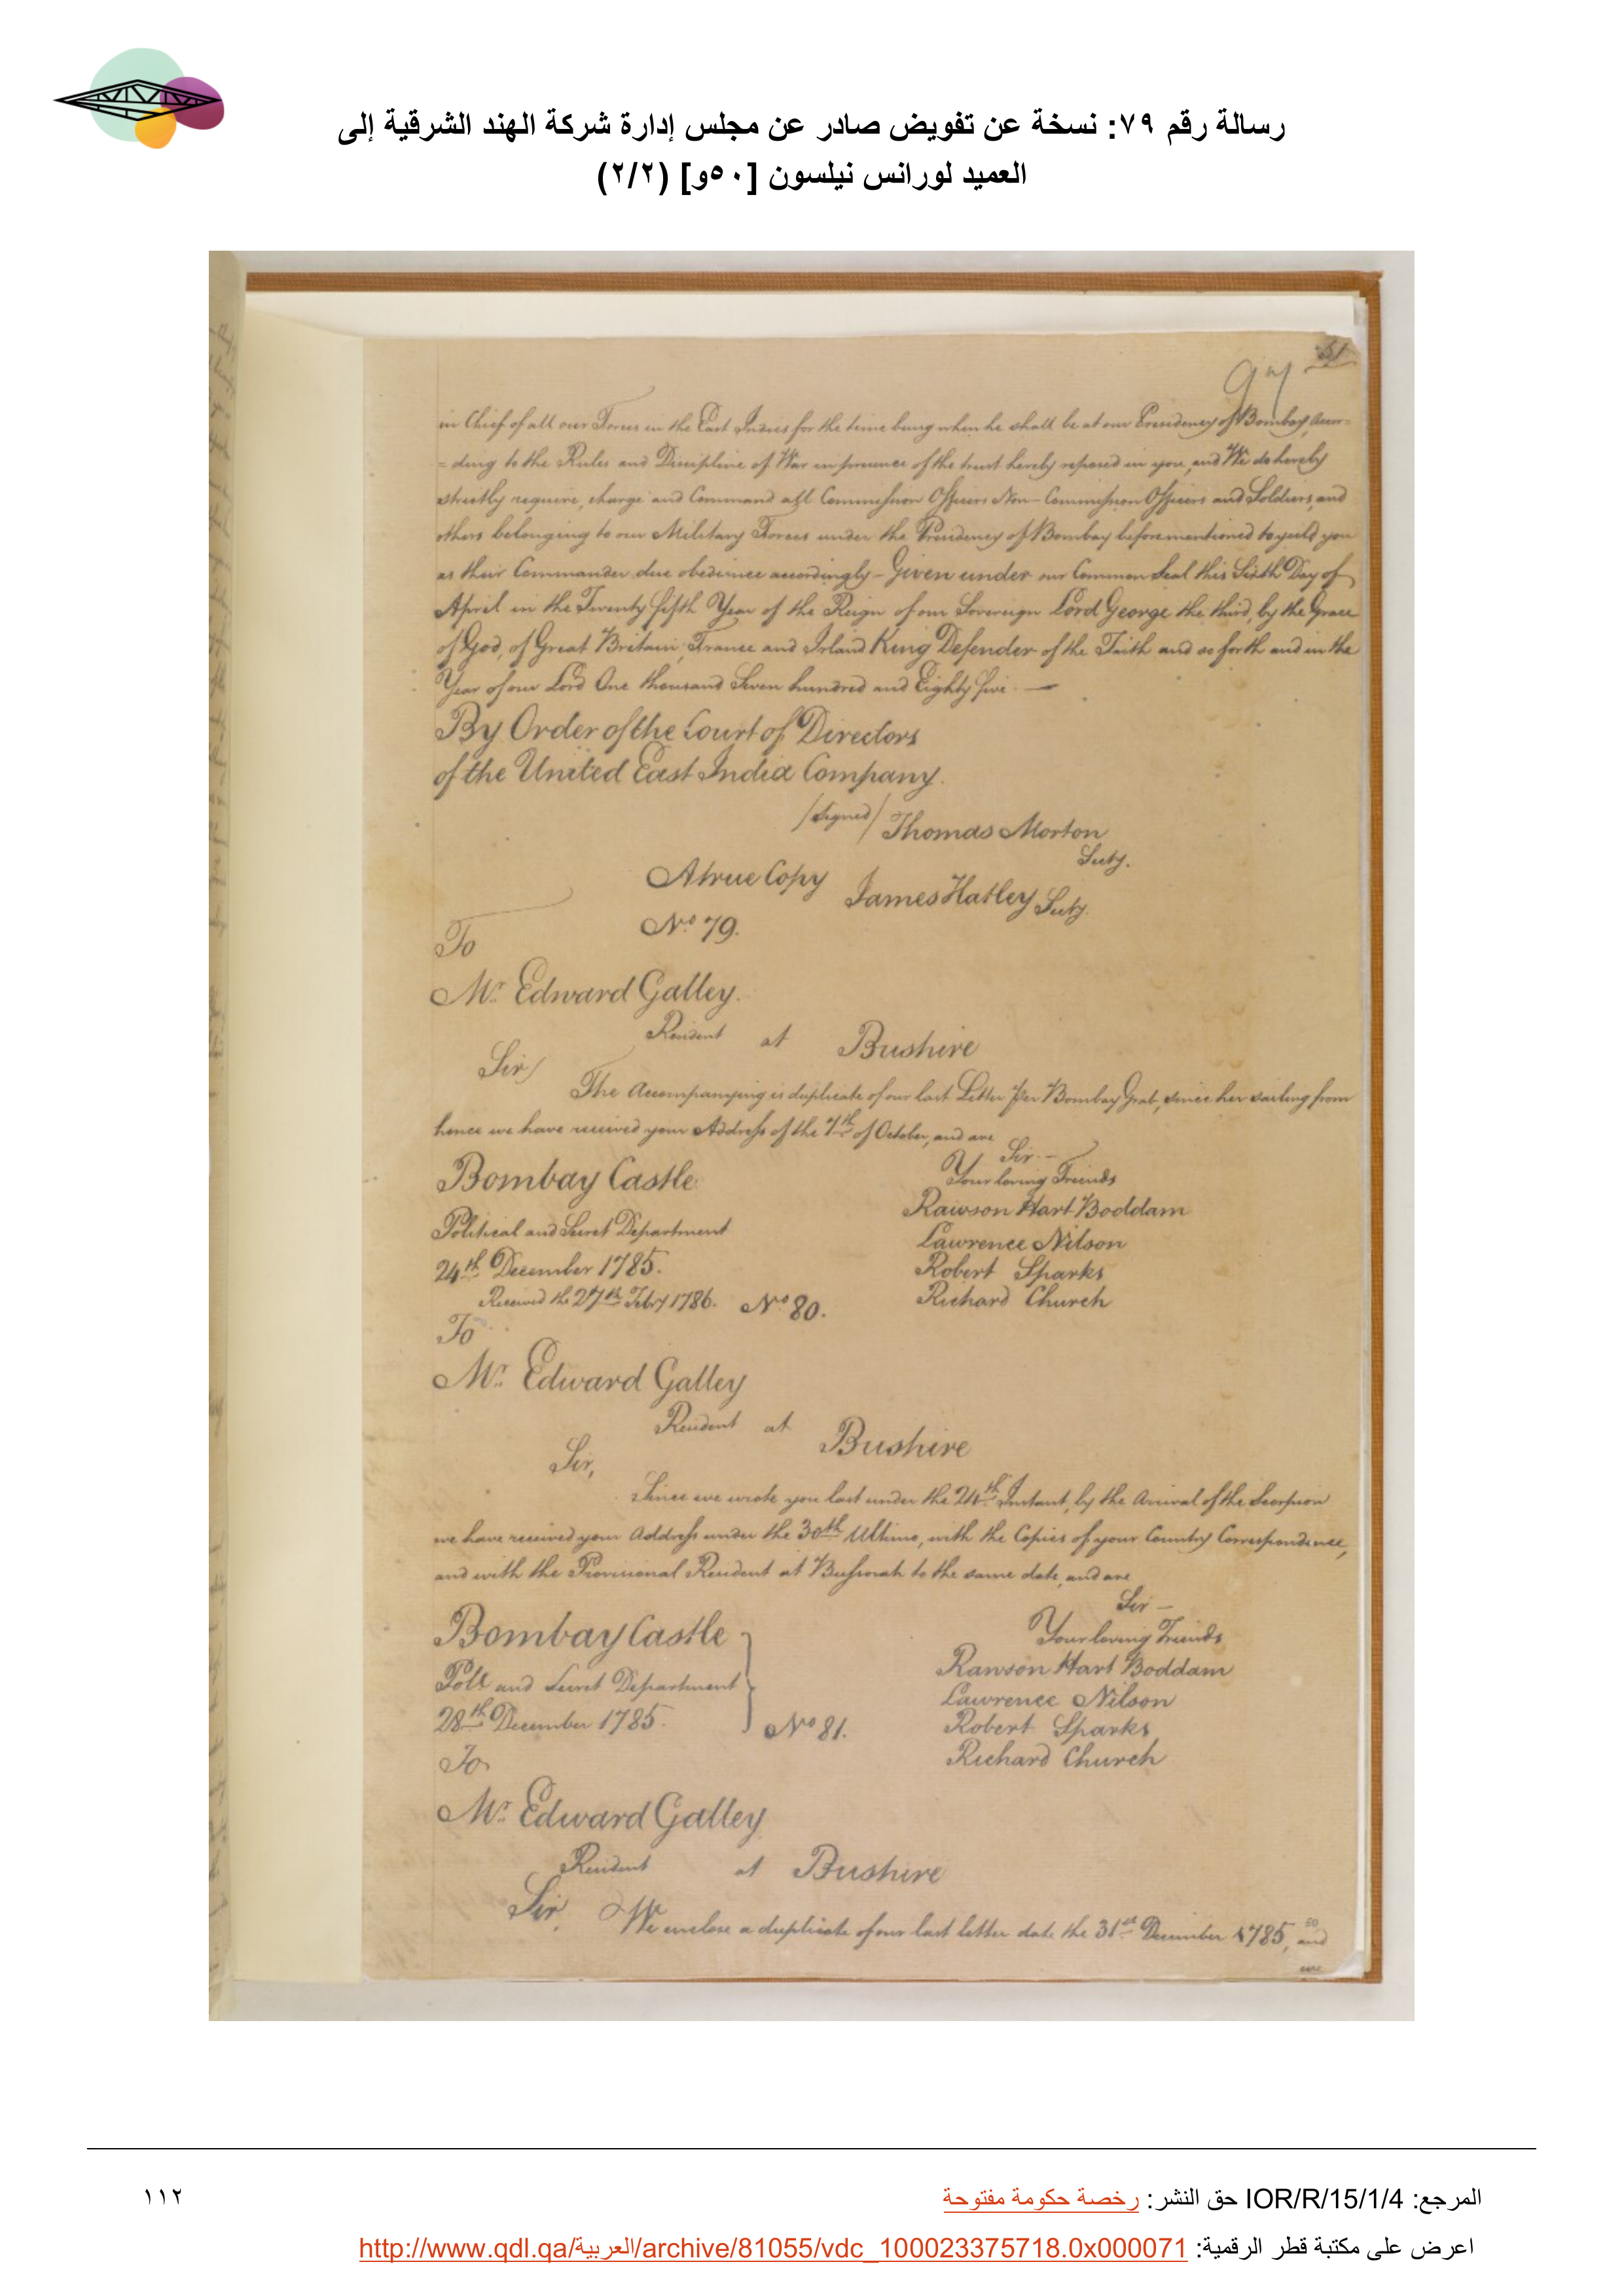 رسالة رقم ٧٩: نسخة عن تفويض صادر عن مجلس إدارة شركة الهند الشرقية إلى
العميد لورانس نيلسون [٥٠و] (٢/٢)
51
in Chief of all our Forces in the East Indies for the time being when he shall be at our Presidency of Bombay, accor=
=ding to the Rules and Discipline of War in pursuance of the trust hereby reposed in you, and We do hereby
strictly require, charge and Command all Commission Officers Non-Commission Officers and Soldiers, and
others belonging to our Military Forces under the Presidency of Bombay beforementioned to yeild you
as their Commander due obedience accordingly - Given under our Common Seal this Sixth Day of
April in the Twenty fifth Year of the Reign of our Sovereign Lord George the third, by the Grace
of God, of Great Britain, France and Irland King Defender of the Faith and so forth and in the
Year of our Lord One thousand Seven hundred and Eighty five. —
By Order of the Court of Directors
of the United East India Company.
/Signed/ Thomas Morton
Secty.
A true Copy James Hatley Secty.
No. 79.
To
Mr. Edward Galley.
Resident at Bushire
Sir/
The Accompanying is duplicate of our last Letter per Bombay Grab, since her sailing from
hence we have received your Address of the 7th of October, and are
Sir. -
Your loving Friends
Bombay Castle
Rawson Hart Boddam
Political and Secret Department
Lawrence Nilson
24th December 1785.
Robert Sparks
Received the 27th Febry 1786. No. 80.
Richard Church
To
Mr. Edward Galley
Resident at Bushire
Sir,
Since we wrote you last under the 24th Instant, by the Arrival of the Scorpion
we have received your Address under the 30th Ultimo, with the Copies of your Country Correspondence,
and with the Provisional Resident at Bussorah to the same date, and are
Sir -
Bombay Castle
Your loving Friends
Poll. and Secret Department
Rawson Hart Boddam
28th December 1785.
Lawrence Nilson
No. 81.
Robert Sparks
To
Richard Church
Mr. Edward Galley
Resident at Bushire
Sir, We enclose a duplicate of our last letter date the 31st December 1785, and
we
المرجع: IOR/R/15/1/4 حق النشر: رخصة حكومة مفتوحة
١١٢
اعرض على مكتبة قطر الرقمية: http://www.qdl.qa/العربية/archive/81055/vdc_100023375718.0x000071